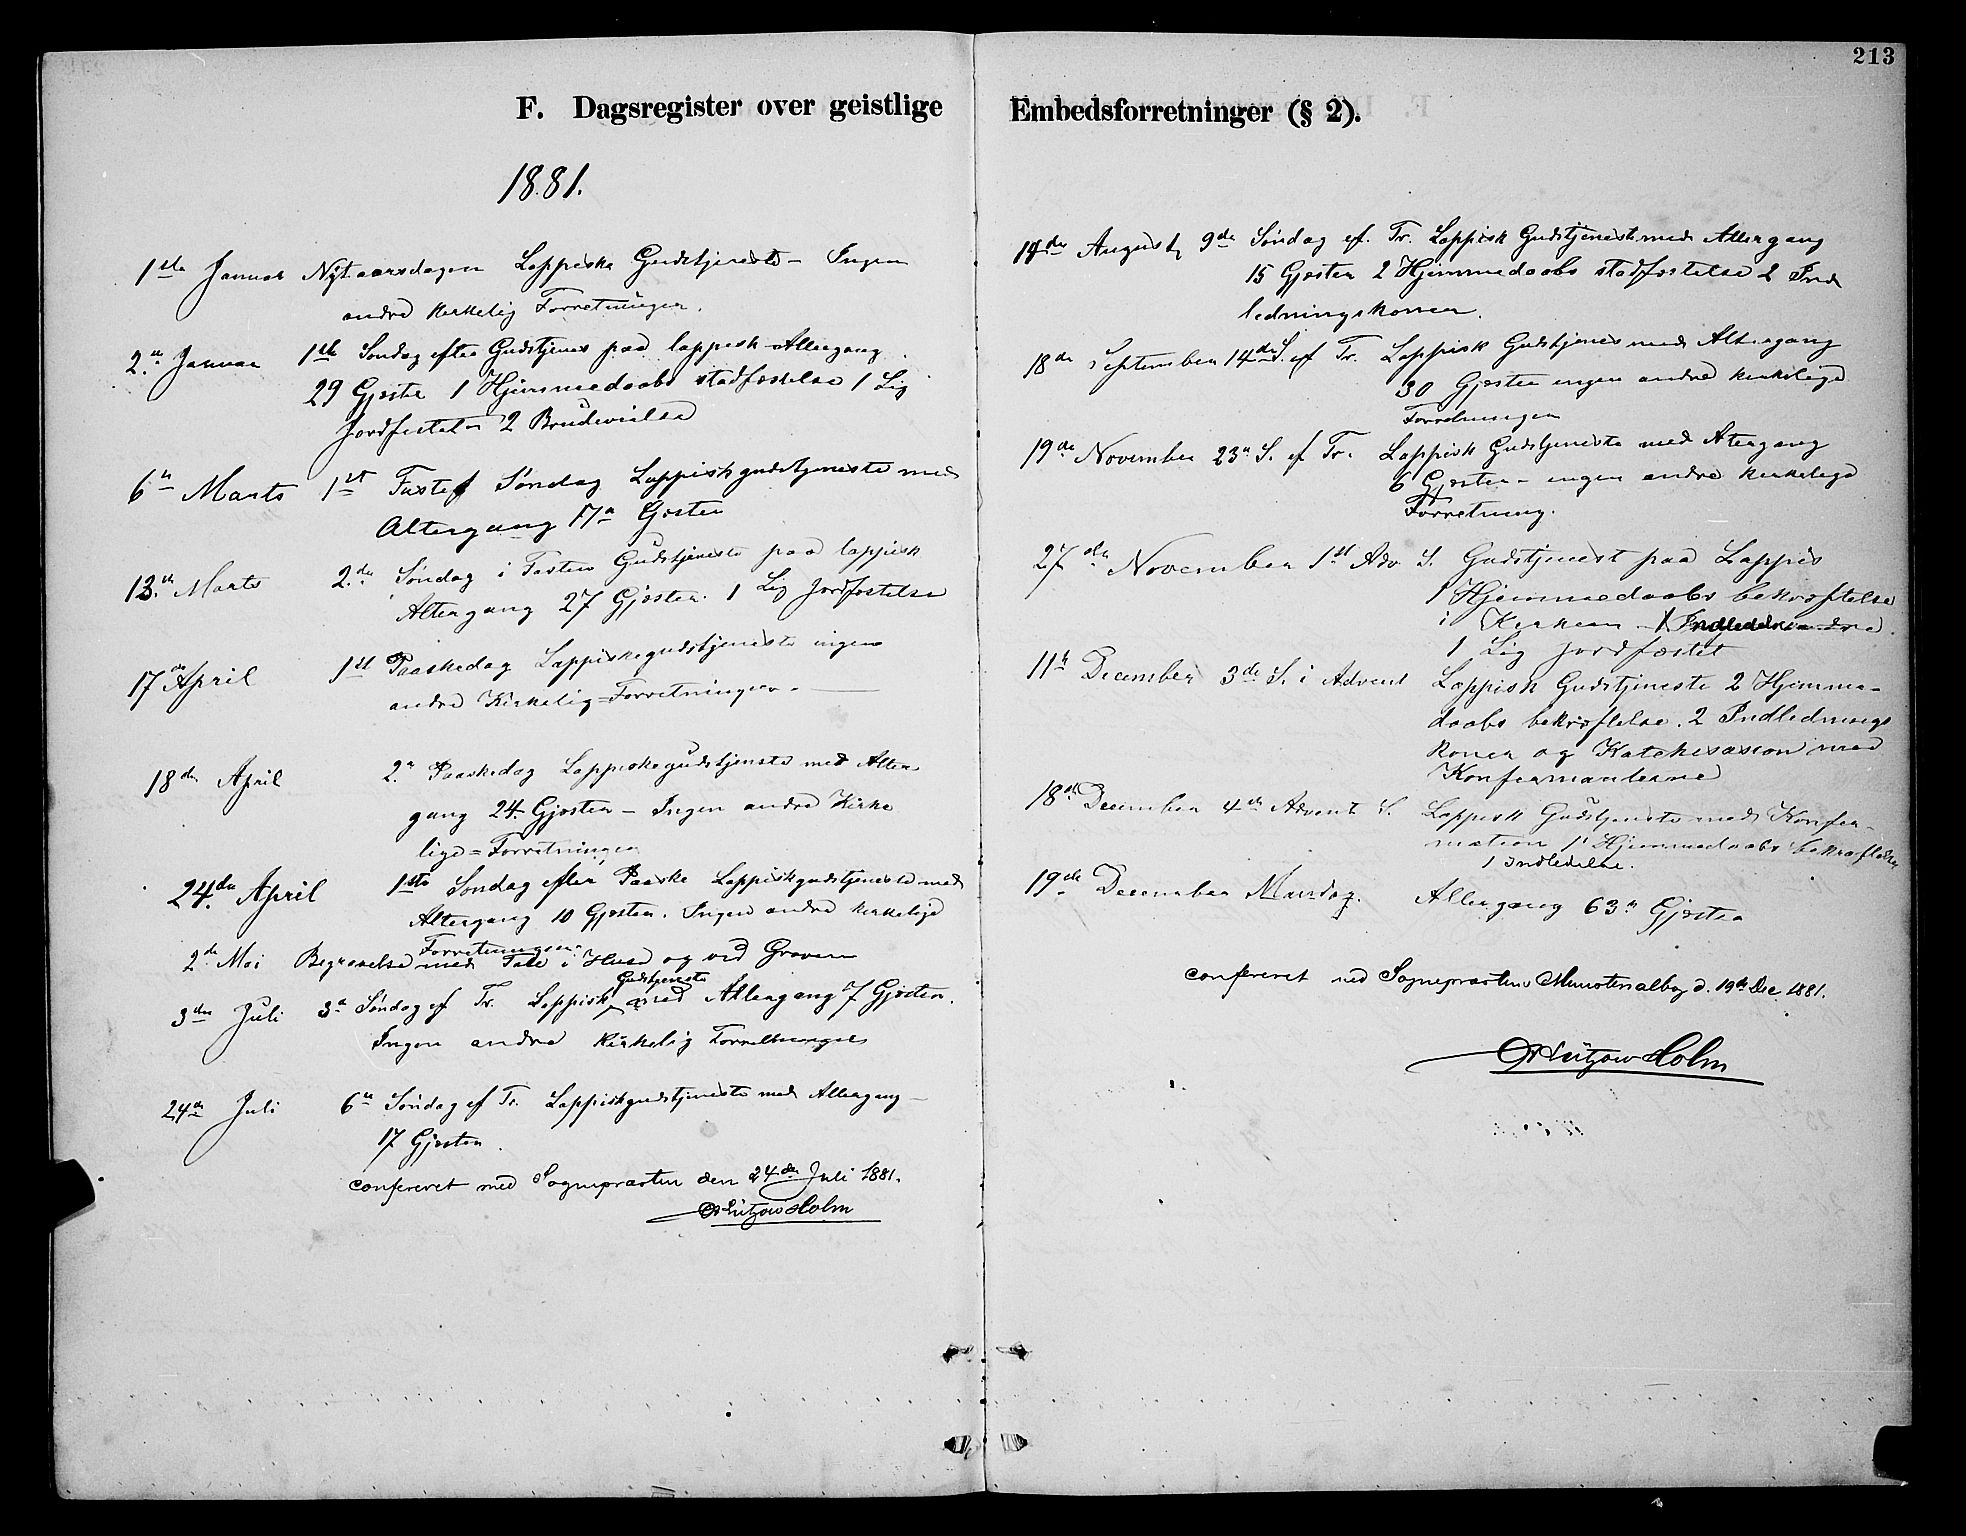 213
F. Dagsregister over geistlige Embedsforretninger (§ 2).
1881.
1ste Januar Nytaarsdagen Lappiske Gudstjeneste – Ingen
andre Kirkelig Forretninger.
2den Januar 1ste Søndag efter Gudstjenes paa lappisk Altergang
29 Gjester 1 Hjemmedaabs stadfestelse 1 Lig
Jordfestet – 2 Brudevielse
6te Marts 1st Faste Søndag Lappiskgudstjeneste med
Altergang 17n Gjester
13de Marts 2de Søndag i Fasten Gudstjeneste paa lappisk
Altergang 27 Gjester. 1 Lig Jordfestelse
17de April 1st Paaskedag Lappiskegudstjeneste ingen
andre Kirkelig=Forretninger.
18de April 2n Paaskedag Lappiskegudstjenste med Alter
gang 24 Gjester – Ingen andre Kirke
lige=Forretninger
24de April 1ste Søndag efter Paaske Lappiskgudstjeneste med
Altergang 10 Gjester. Ingen andre kirkelige
Forretninger
2de Mai Begravelse med Tale i Huse og ved Graven
3de Juli 3n Søndag ef Tr. Lappisk Gudstjeneste med Altergang 7 Gjester.
Ingen andre Kirkelig Forretninger
24de Juli 6te Søndag ef Tr. Lappiskgudstjeneste med Altergang –
17 Gjester.
confereret med Sognepræsten den 24de Juli 1881.
Lützow Holm
14de August 9de Søndag ef. Tr. Lappisk Gudstjeneste med Altergang
15 Gjester 2 Hjemmedaabs stadfestelse 2 Ind
ledningskoner.
18de September 14de S. ef Tr. Lappisk Gudstjenes med Altergang
30 Gjester ingen andre kirkelige
Forretninger
19de November 23n S. ef Tr. Lappisk Gudstjeneste med Atergang
6 Gjester – ingen andre kirkelige
Forretning.
27de November 1st Adv S. Gudstjenest paa Lappis
1 Hjemmedaabs bekræftelse
i Kirken –
1 Lig jordfæstet
11te December 3de S. i Advent Lappisk Gudstjeneste 2 Hjemme-
daabs bekræftelse. 2 Indlednings
koner og Katekisasion med
Konfermanterne
18de December 4de Advent S. Lappisk Gudstjenste med Konfer-
mation 1 Hjemmedaabs bekræftelse
1 indledelse.
19de December Mandag. Altergang 63n Gjester
confereret ved Sognepræstens Ministerialbog d. 19de Dec 1881.
Lützow Holm